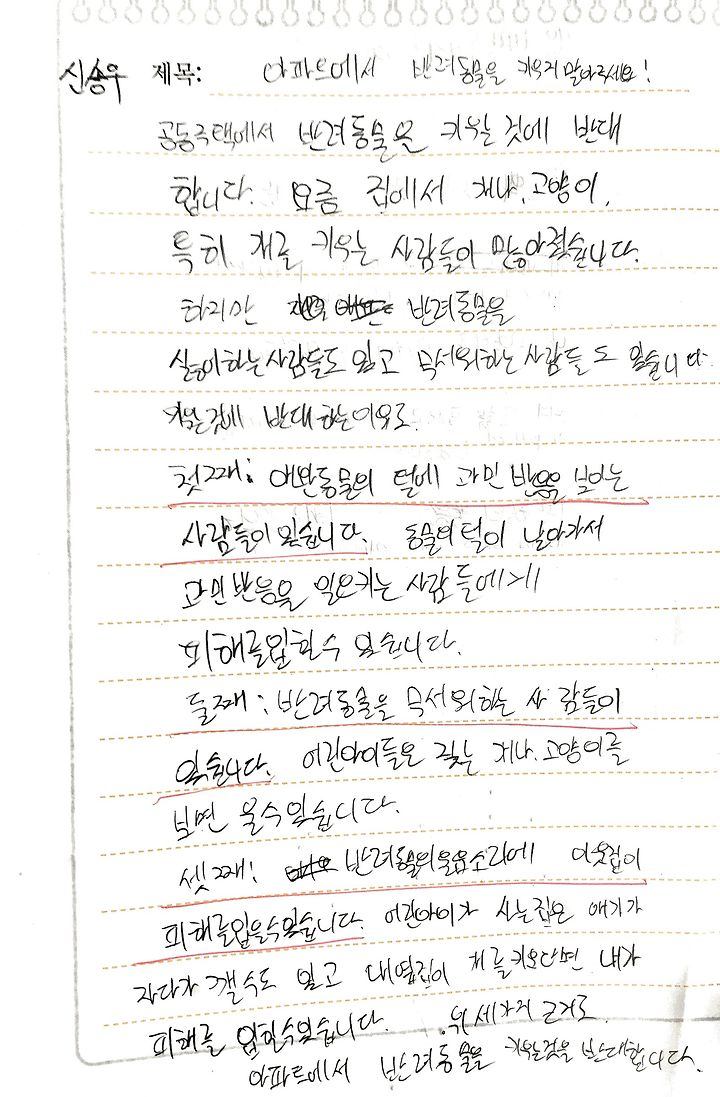 신승우 제목: 아파트에서 반려동물을 키우지 말아주세요!
공동주택에서 반려동물을 키우는 것에 반대
합니다. 요즘 집에서 개나, 고양이,
특히 개를 키우는 사람들이 많아졌습니다.
하지만 반려동물을
싫어하는 사람들도 있고 무서워하는 사람들도 있습니다.
키우는것에 반대하는이유로
첫째: 애완동물의 털에 과민 반응을 보이는
사람들이 있습니다. 동물의 털이 날아가서
과민반응을 일으키는 사람들에게
피해를입힐수 있습니다.
둘째: 반려동물을 무서워하는 사람들이
있습니다. 어린아이들은 짖는 개나, 고양이를
보면 울수있습니다.
셋째: 반려동물의울음소리에 이웃집이
피해를입을수있습니다. 어린아이가 사는집은 애기가
자다가 깰수도 있고 내옆집이 개를키운다면 내가
피해를 입힐수있습니다. 위 세가지 근거로
아파트에서 반려동물을 키우는것을 반대합니다.